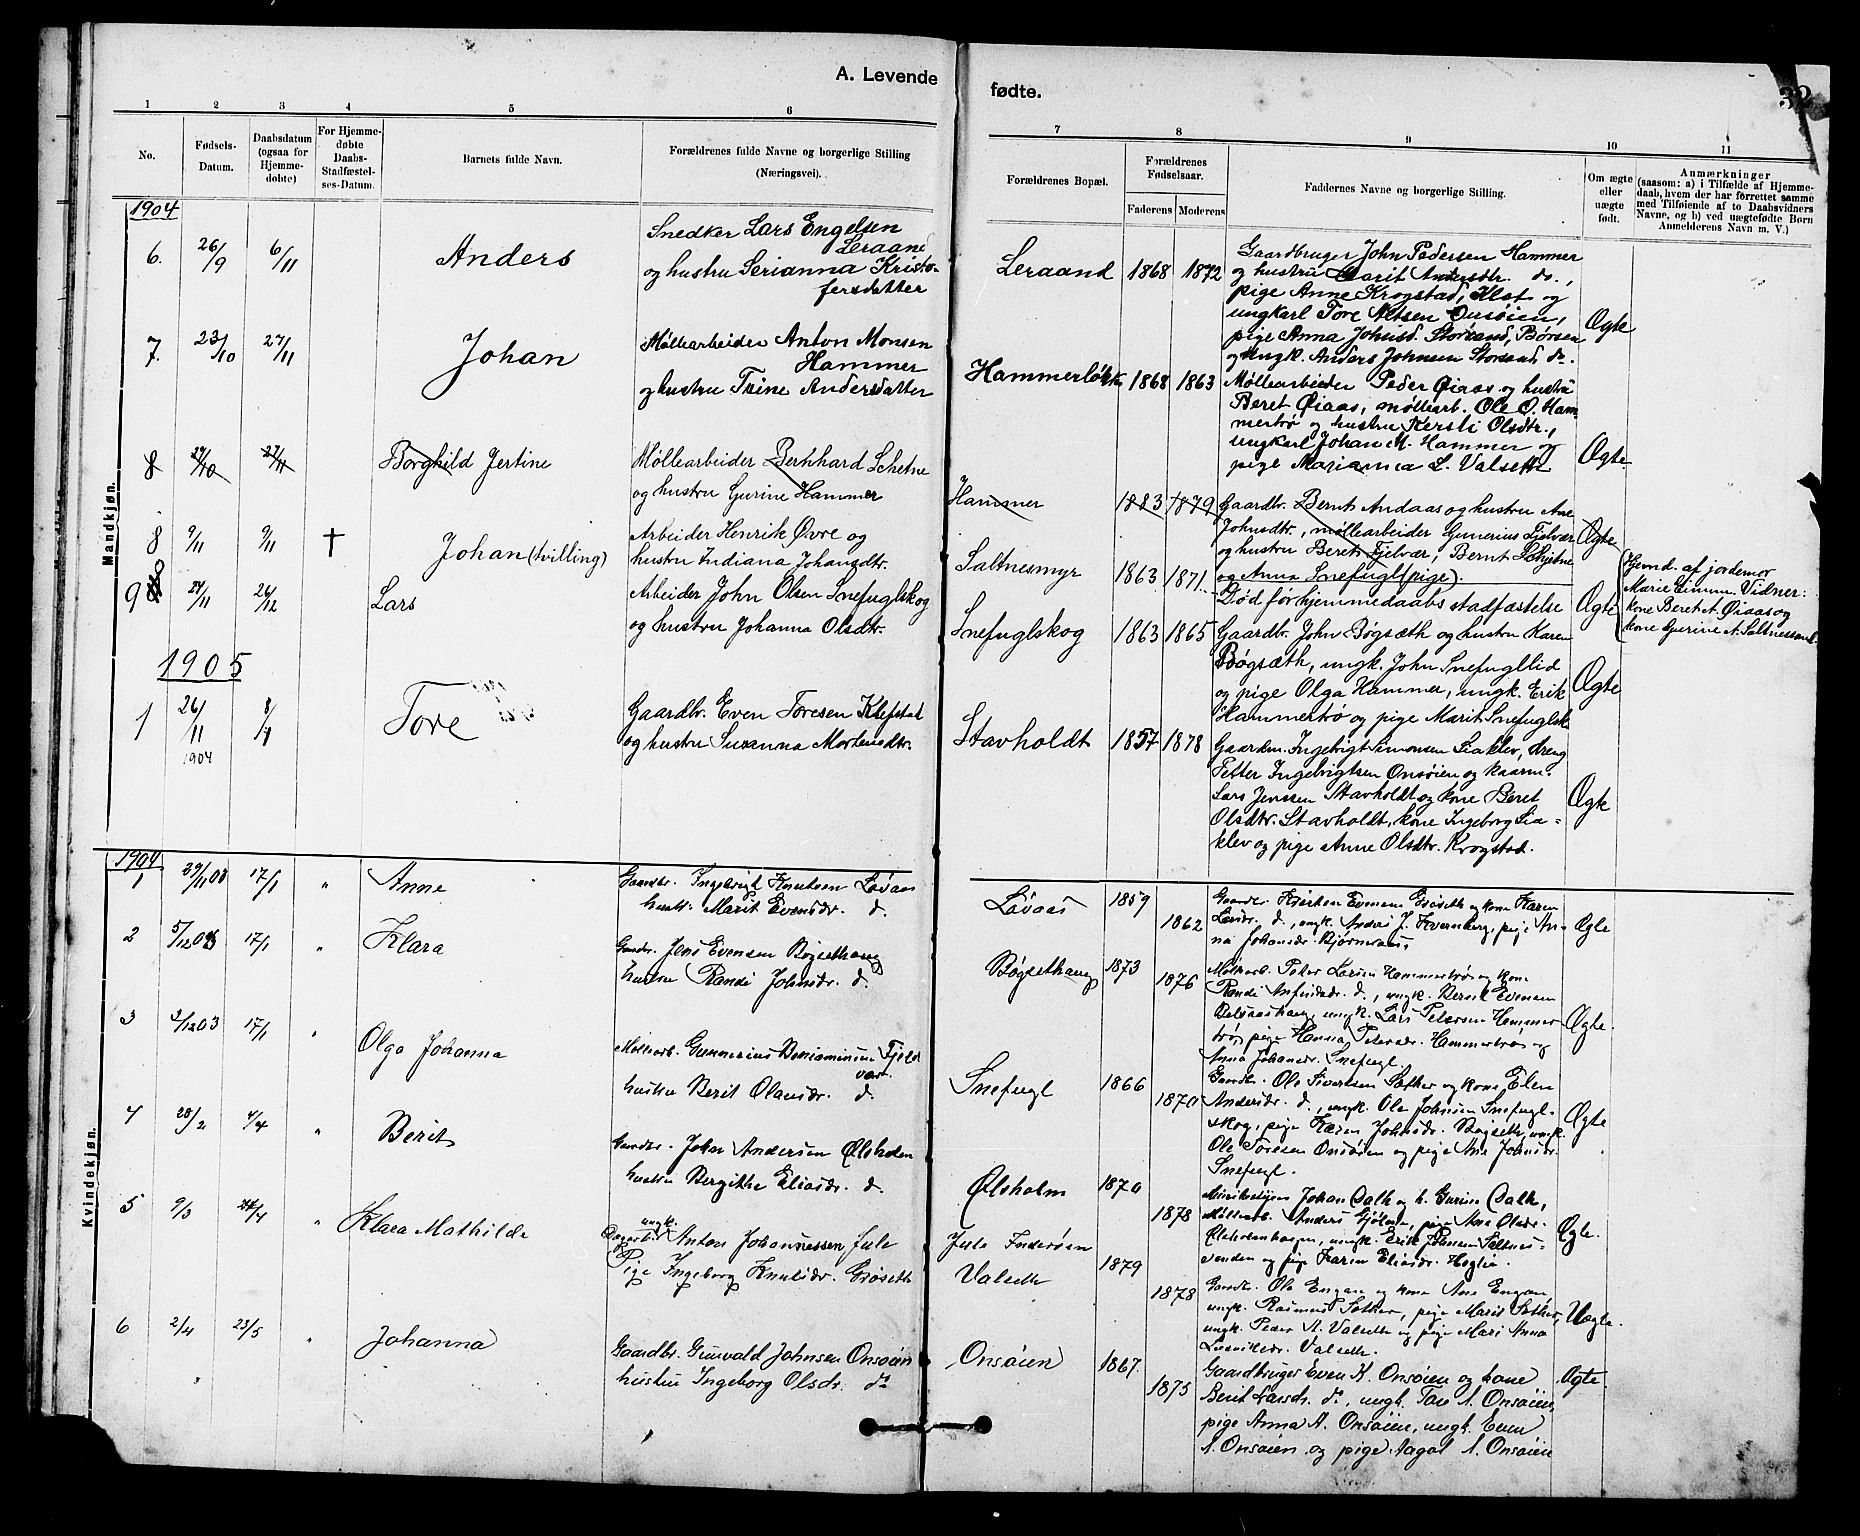 A. Levende
fødte.
32
1 2 3 4 5 6 7 8 9 10 11
No.
Fødsels-
Datum.
Daabsdatum
(ogsaa for
Hjemme-
døbte)
For Hjemme-
døbte
Daabs-
Stadfæstel-
ses-Datum.
Barnets fulde Navn.
Forældrenes fulde Navne og borgerlige Stilling
(Næringsvei).
Forældrenes Bopæl.
Forældrenes
Fødselsaar.
Faderens Moderens
Faddernes Navne og borgerlige Stilling.
Om ægte
eller
uægte
født.
Anmærkninger
(saasom: a) i Tilfælde af Hjemme-
daab, hvem der har forrettet samme
med Tilføiende af to Daabsvidners
Navne, og b) ved uegtefødte Børn
Anmelderens Navn m. V.)
Mandkjøn.
1904
6. 26/9 6/11 Anders
Snedker Lars Engelsen
Leraand
og hustru Serianna Kristo-
fersdatter
Leraand 1868 1872
Gaardbruger John Pedersen Hammer
og hustru Marit Andersdtr. do.,
pige Anne Krogstad, Klæt og
ungkarl Tore Altsen Onsøien,
pige Anna Johnsd. Storsand, Børsen
og ungk. Anders Johnsen Storsand do.
Ægte
7. 23/10 27/11 Johan
Møllearbeider Anton Monsen
Hammer
og hustru Trine Andersdatter
Hammerløkk 1868 1863
Møllearbeider Peder Øiaas og hustru
Beret Øiaas, møllearb. Ole O. Ham-
mertrø og hustru Kersti Olsdtr.,
ungkarl Johan M. Hammer og
pige Marianna L. Valseth
Ægte
8 27/10 27/11 Borghild Jertine
Møllearbeider Bernhard Schetne
og hustru Gurine Hammer
Hammer 1883 1879
Gaardbr. Bernt Andaas og hustru Ane
Johnsdtr., møllearbeider Gunerius Fjelvær
og hustru Beret Fjelvær, Bernt Schjetne
og Anna Snefugl (pige).
Ægte
8 9/11 9/11 † Johan (tvilling)
Arbeider Henrik Øvre og
hustru Indiana Johansdtr.
Saltnesmyr 1863 1871
Død før hjemmedaabs stadfæstelse
Ægte
Hjemd. af jordemor
Marie Eimm. Vidner:
kone Beret A. Øiaas og
kone Gurine A. Saltnessand.
9 24/11 26/12 Lars
Arbeider John Olsen Snefuglskog
og hustru Johanna Olsdtr.
Snefuglskog 1863 1865
Gaardbr. John Bøgsæth og hustru Karen
Bøgsæth, ungk. John Snefugllid
og pige Olga Hammer, ungk. Erik
Hammertrø og pige Marit Snefuglsk
Ægte
1905
1 26/11 1904 8/1 Tore
Gaardbr. Even Toresen Klefstad
og hustru Susanna Mortensdtr.
Stavholdt 1857 1878
Gaardm. Ingebrigt Simonsen Liaklev, dreng
Petter Ingebrigtsen Onsøien og kaarm.
Lars Jenssen Stavholdt og kone Beret
Olsdtr. Stavholdt, kone Ingeborg Lia-
klev og pige Anne Olsdtr. Krogstad.
Ægte
Kvindekjøn.
1904
1 29/11 03 17/1 " Anne
Gaardbr. Ingebrigt Knutsen Løvaas
hustr. Marit Evensdr. d.
Løvaas 1859 1862
Gaardbr. Kristen Evensen Grøseth og kone Karen
Larsdr. d., ungk. Anders J. Kvernberg, pige An-
na Johansdr. Bjørneraas,
Ægte
2 5/12 03 17/1 " Klara
Gaardbr. Jens Evensen Bøgsethaug
hustru Randi Johnsdr. d.
Bøgsethaug 1873 1876
Møllearb. Peter Larsen Hammertrø og kone
Randi d., ungk. Bernt Evensen
ungk. Lars Petersen Hammer-
trø, pige Hanna Petersdr. Hammertrø og
Anna Johansdr. Snefugl.
Ægte.
3 3/12 03 17/1 " Olga Johanna
Møllearb. Gunnerius Benjaminsen Fjeld
vær.
hustru Berit Olausdr. d.
Snefugl 1866 1870
Gaardbr. Ole Sivertsen Sæther og kone Elen
Andersdr. d., ungk. Ole Johnsen Snefugl-
skog, pige Karen Johnsdr. Bøgseth, ungk.
Ole Toresen Onsøien og pige Ane Johnsdr.
Snefugl.
Ægte
4 28/2 4/4 " Berit
Gaardbr. John Andersen Ølsholm
hustru Bergithe Eliasdr. d.
Ølsholm 1870 1878
Johan Dalh og h. Gurine Dalh,
Møllearb. Anders Gjølme, pige Ane Olsdr.
ungk. Erik Johnsen Saltnes-
sanden og pige Karen Eliasdr. Høglie.
Ægte.
5 9/3 24/4 " Klara Mathilde
ungk.
Dagarb. Anton Johannessen Jule
Pige Ingeborg Knutsdr. Grøseth
Jule Inderøen
Valseth 1879 1878
Gaardbr. Ole Engan og kone Ane Engan
ungk. Rasmus Sæther, pige Marit Sæther,
ungk. Peder A. Valseth og pige Mari Anna
Valseth.
Uægte.
6 2/4 23/5 " Johanna
Gaardbr. Gunvald Johnsen Onsøien
hustru Ingeborg Olsdr. do
Onsøien 1867. 1875
Gaardbruger Even K. Onsøien og kone
Berit Larsdr. do, ungk. Tore A. Onsøien,
pige Anna A. Onsøien, ungk. Even
A. Onsøien og pige Aagot A. Onsøien
Ægte.